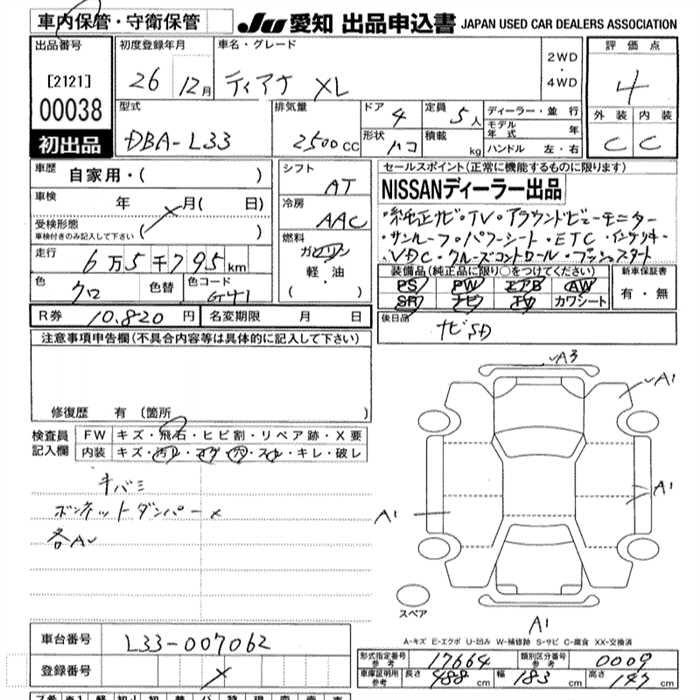 車内保管・守衛保管
JU 愛知 出品申込書 JAPAN USED CAR DEALERS ASSOCIATION
出品番号
[2121]
00038
初出品
初度登録年月
26 12月
車名・グレード
ティアナ XL
2WD
・
4WD
評価点
4
外装 内装
C C
型式
DBA-L33
排気量
2500cc
ドア 4
形状 ハコ
定員 5人
積載 kg
ディーラー・並行
モデル年式 年
ハンドル 左・右
車歴 自家用・( )
車検 年 月( 日)
受検形態
車検付きのみ記入して下さい ( )
走行 6万5千795km
色 クロ
色替
色コード G41
シフト
AT
冷房
AAC
燃料
ガソリン
軽・油
(・)
セールスポイント(正常に機能するものに限ります)
NISSANディーラー出品
・純正ナビ・TV・アラウンドビューモニター
・サンルーフ・パワーシート・ETC・インテリキー
・VDC・クルーズコントロール・プッシュスタート
装備品(純正品に限り○をつけてください)
PS PW エアB AW
SR ナビ TV カワシート
新車保証書
有・無
R券 10.820円
名変期限 月 日
後日品
ナビSD
注意事項申告欄(不具合内容等は具体的に記入して下さい)
修復歴 有(箇所 )
検査員
記入欄
FW キズ・飛石・ヒビ割・リペア跡・X要
内装 キズ・汚レ・コゲ・穴・スレ・キレ・破レ
キバミ
ボンネットダンパー×
各AU
A3
A1
A1
A1
A1
スペア
A-キズ E-エクボ U-凹み W-補修跡 S-サビ C-腐食 XX-交換済
車台番号 L33-007062
登録番号
形式指定番号
参考 17664
類別区分番号
参考 0009
車庫証明用
参考 長さ 488cm 幅 183cm 高さ 147cm